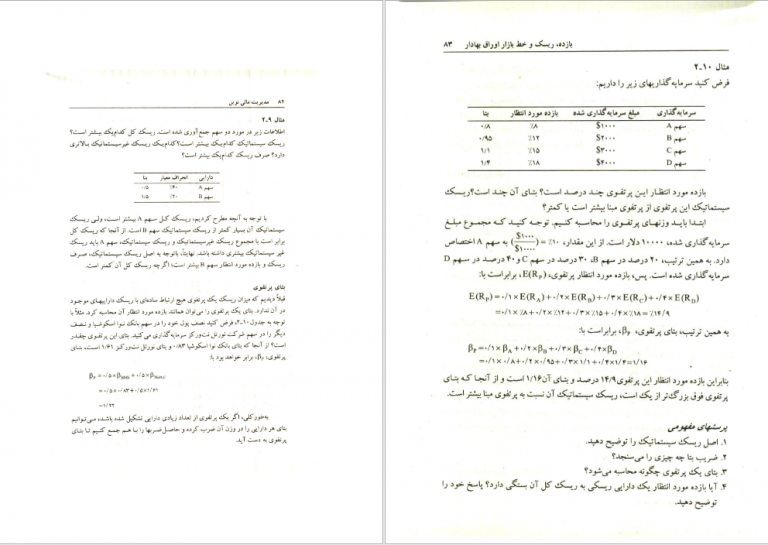 ۸۲ مدیریت مالی نوین
مثال ۹ـ۲
اطلاعات زیر در مورد دو سهم جمع‌آوری شده است. ریسک کل کدام‌یک بیشتر است؟
ریسک سیستماتیک کدام‌یک بیشتر است؟ کدام‌یک ریسک غیرسیستماتیک بالاتری
دارد؟ صرف ریسک کدام‌یک بیشتر است؟
دارایی انحراف معیار بتا
سهم A ٪۴۰ ۰/۵
سهم B ٪۲۰ ۱/۵
با توجه به آنچه مطرح کردیم، ریسک کل سهم A بیشتر است، ولی ریسک
سیستماتیک آن بسیار کمتر از ریسک سیستماتیک سهم B است. از آنجا که ریسک کل
برابر است با مجموع ریسک غیرسیستماتیک و ریسک سیستماتیک، سهم A باید ریسک
غیرسیستماتیک بیشتری داشته باشد. نهایتاً، باتوجه به اصل ریسک سیستماتیک، صرف
ریسک و بازده مورد انتظار سهم B بیشتر است؛ اگرچه ریسک کل آن کمتر است.
بتای پرتفوی
قبلاً دیدیم که میزان ریسک یک پرتفوی هیچ ارتباط ساده‌ای با ریسک داراییهای موجود
در آن ندارد. بتای یک پرتفوی را می‌توان همانند بازده مورد انتظار آن محاسبه کرد. مثلاً با
توجه به جدول ۱۰ـ۲، فرض کنید نصف پول خود را در سهم بانک نوا اسکوشیا و نصف
دیگر را در سهم شرکت نورتل نت‌ورکز سرمایه‌گذاری می‌کنید. بتای این پرتفوی چقدر
است؟ از آنجا که بتای بانک نوا اسکوشیا ۰/۸۳ و بتای نورتل نت‌ورکز ۱/۶۱ است، بتای
پرتفوی، βP، برابر خواهد بود با:
βP = ۰/۵×βBNS + ۰/۵×βNortel
= ۰/۵×۰/۸۳ + ۰/۵×۱/۶۱
= ۱/۲۲
به‌طورکلی، اگر یک پرتفوی از تعداد زیادی دارایی تشکیل شده باشد، می‌توانیم
بتای هر دارایی را در وزن آن ضرب کرده و حاصل‌ضربها را با هم جمع کنیم تا بتای
پرتفوی به دست آید.
بازده، ریسک و خط بازار اوراق بهادار ۸۳
مثال ۱۰ـ۲
فرض کنید سرمایه‌گذاریهای زیر را داریم:
سرمایه‌گذاری مبلغ سرمایه‌گذاری شده بازده مورد انتظار بتا
سهم A $۱۰۰۰ ٪۸ ۰/۸
سهم B $۲۰۰۰ ٪۱۲ ۰/۹۵
سهم C $۳۰۰۰ ٪۱۵ ۱/۱
سهم D $۴۰۰۰ ٪۱۸ ۱/۴
بازده مورد انتظار این پرتفوی چند درصد است؟ بتای آن چند است؟ ریسک
سیستماتیک این پرتفوی از پرتفوی مبنا بیشتر است یا کمتر؟
ابتدا باید وزنهای پرتفوی را محاسبه کنیم. توجه کنید که مجموع مبلغ
سرمایه‌گذاری شده، ۱۰۰۰۰ دلار است. از این مقدار، ٪۱۰ = ($۱۰۰۰/$۱۰۰۰۰) به سهم A اختصاص
دارد. به همین ترتیب، ۲۰ درصد در سهم B، ۳۰ درصد در سهم C و ۴۰ درصد در سهم D
سرمایه‌گذاری شده است. پس، بازده مورد انتظار پرتفوی، E(RP)، برابراست با:
E(RP) = ۰/۱×E(RA)+۰/۲×E(RB)+۰/۳×E(RC)+۰/۴×E(RD)
= ۰/۱×٪۸+۰/۲×٪۱۲+۰/۳×٪۱۵+۰/۴×٪۱۸ = ٪۱۴/۹
به همین ترتیب، بتای پرتفوی، βP، برابراست با:
βP = ۰/۱×βA+۰/۲×βB+۰/۳×βC+۰/۴×βD
= ۰/۱×۰/۸+۰/۲×۰/۹۵+۰/۳×۱/۱+۰/۴×۱/۴=۱/۱۶
بنابراین بازده مورد انتظار این پرتفوی ۱۴/۹ درصد و بتای آن ۱/۱۶ است و از آنجا که بتای
پرتفوی فوق بزرگ‌تر از یک است، ریسک سیستماتیک آن نسبت به پرتفوی مبنا بیشتر است.
پرسشهای مفهومی
۱. اصل ریسک سیستماتیک را توضیح دهید.
۲. ضریب بتا چه چیزی را می‌سنجد؟
۳. بتای یک پرتفوی چگونه محاسبه می‌شود؟
۴. آیا بازده مورد انتظار یک دارایی ریسکی به ریسک کل آن بستگی دارد؟ پاسخ خود را
توضیح دهید.